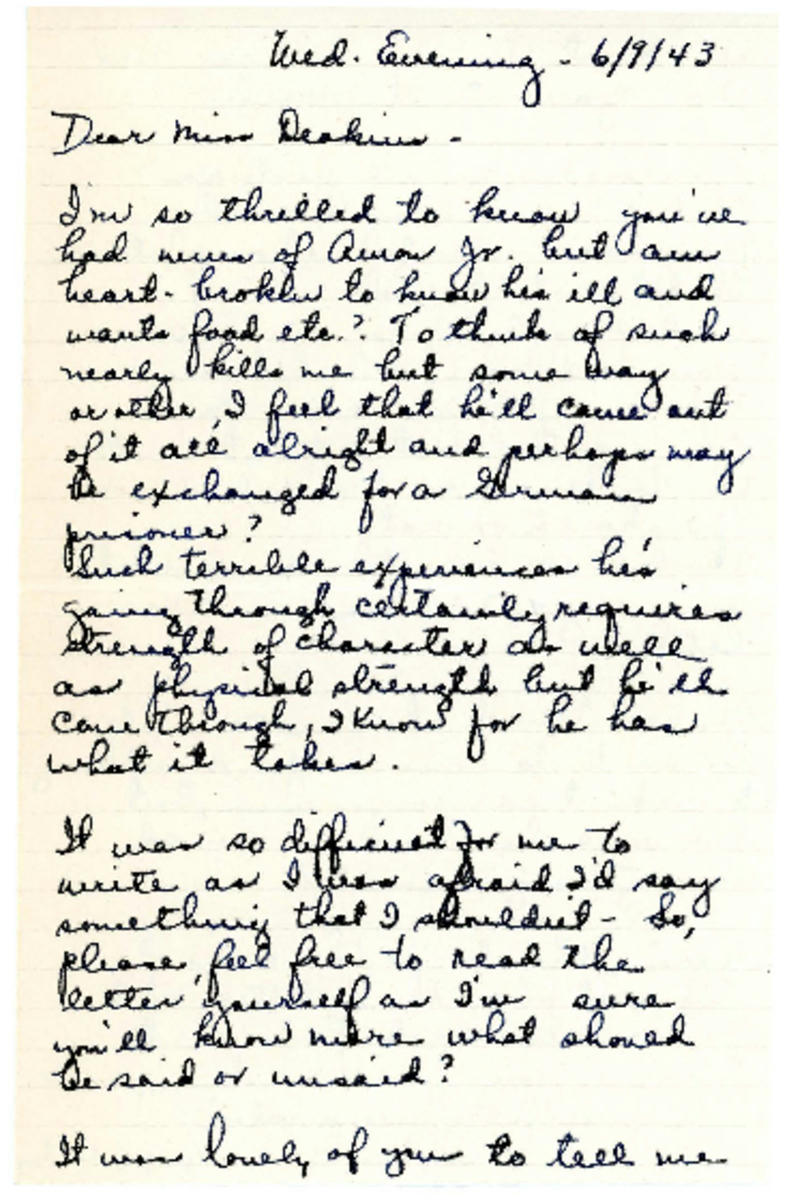 Wed. Evening - 6/9/43
Dear Miss Deakins -
I'm so thrilled to know you've
had news of Amon Jr. but am
heart-broken to know his ill and
wants food etc.? To think of such
nearly kills me but some way
or other, I feel that he'll come out
of it all alright and perhaps may
be exchanged for a German
prisoner?
Such terrible experiences he's
going through certainly requires
strength of character as well
as physical strength but he'll
come through, I know for he has
what it takes.
It was so difficult for me to
write as I was afraid I'd say
something that I shouldn't - So,
please feel free to read the
letter yourself as I'm sure
you'll know more what should
be said or unsaid?
It was lovely of you to tell me